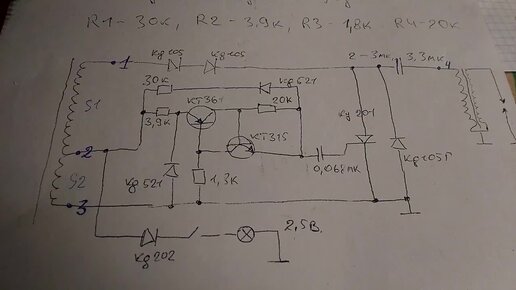 R1-30к, R2-3,9к, R3-1,8к R4-20к
кд105 кд105
1
2-3мк 3,3мк 4
30к кд521
S1
КТ361 20к
3,9к КТ315
ку201
2
S2 кд521 1,3к
0,068мк кд105Г
3
2,5В.
кд202